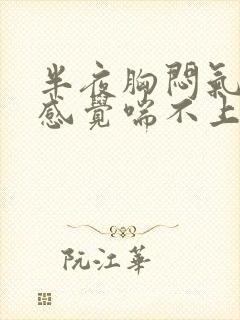 半夜胸悶氣
感覺喘不上
阮江華